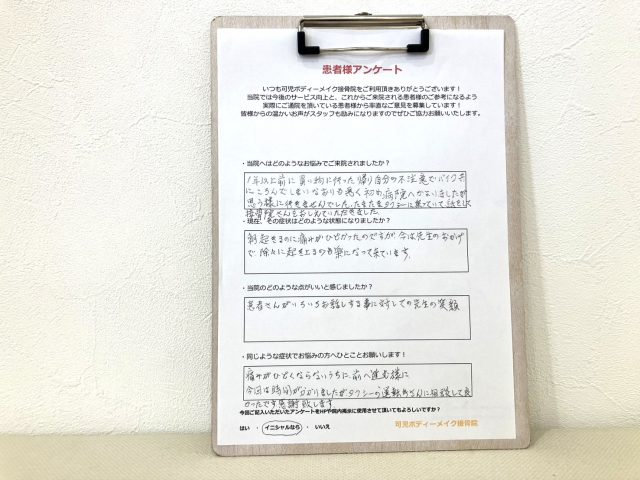 患者様アンケート
いつも可児ボディーメイク接骨院をご利用頂きありがとうございます！
当院では今後のサービス向上と、これからご来院される患者様のご参考になるよう
実際にご通院を頂いている患者様から率直なご意見を募集しています！
皆様からの温かいお声がスタッフも励みになりますのでぜひご協力お願いいたします。
・当院へはどのようなお悩みでご来院されましたか？
1年以上前に買い物に行った帰り自分の不注意でバイク共
にころんでしまいなおりも悪く病院へかよいましたが
思う様に行きませんでした。たまたまタクシーに乗っていて
接骨院さんをおしえていただきました。
・現在、その症状はどのような状態になりましたか？
朝起きるのに痛みがひどかったのですが今は先生のおかげ
で除々に起き上るのも楽になって来ています。
・当院のどのような点がいいと感じましたか？
患者さんがいろいろお話しする事に対しての先生の笑顔
・同じような症状でお悩みの方へひとことお願いします！
痛みがひどくならないうちに前へ進む様に
今回は時間がかかりましたがタクシーの運転手さんに相談して良
かったです感謝致します
今回ご記入いただいたアンケートをHPや院内掲示に使用させて頂いてもよろしいですか？
はい ・ イニシャルなら ・ いいえ
可児ボディーメイク接骨院